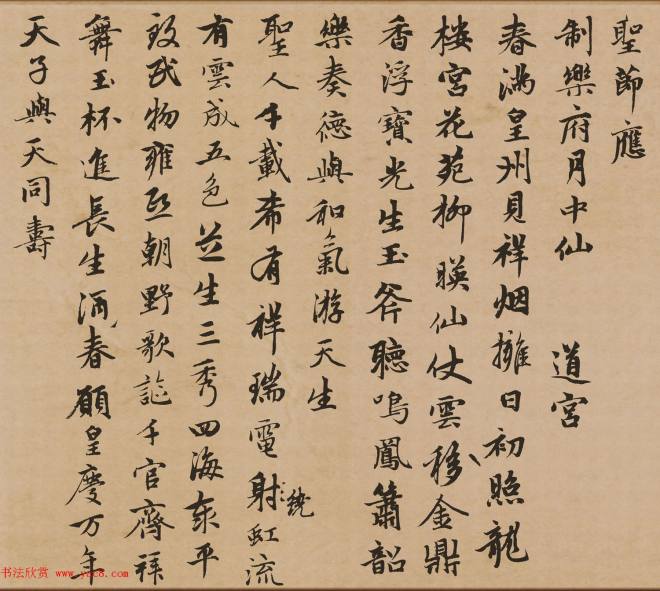 聖節應
制樂府月中仙　道宮
春滿皇州見祥烟擁日初照龍
樓宮花苑柳暎仙仗雲移金鼎
香浮寶光生玉斧聽鳴鳳簫韶
樂奏德與和氣游天生
聖人千載希有祥瑞電射虹流
繞
有雲成五色芝生三秀四海泰平
致民物雍熙朝野歌謳千官齊拜
舞玉杯進長生酒春願皇慶万年
天子與天同壽
书法欣赏 www.yac8.com